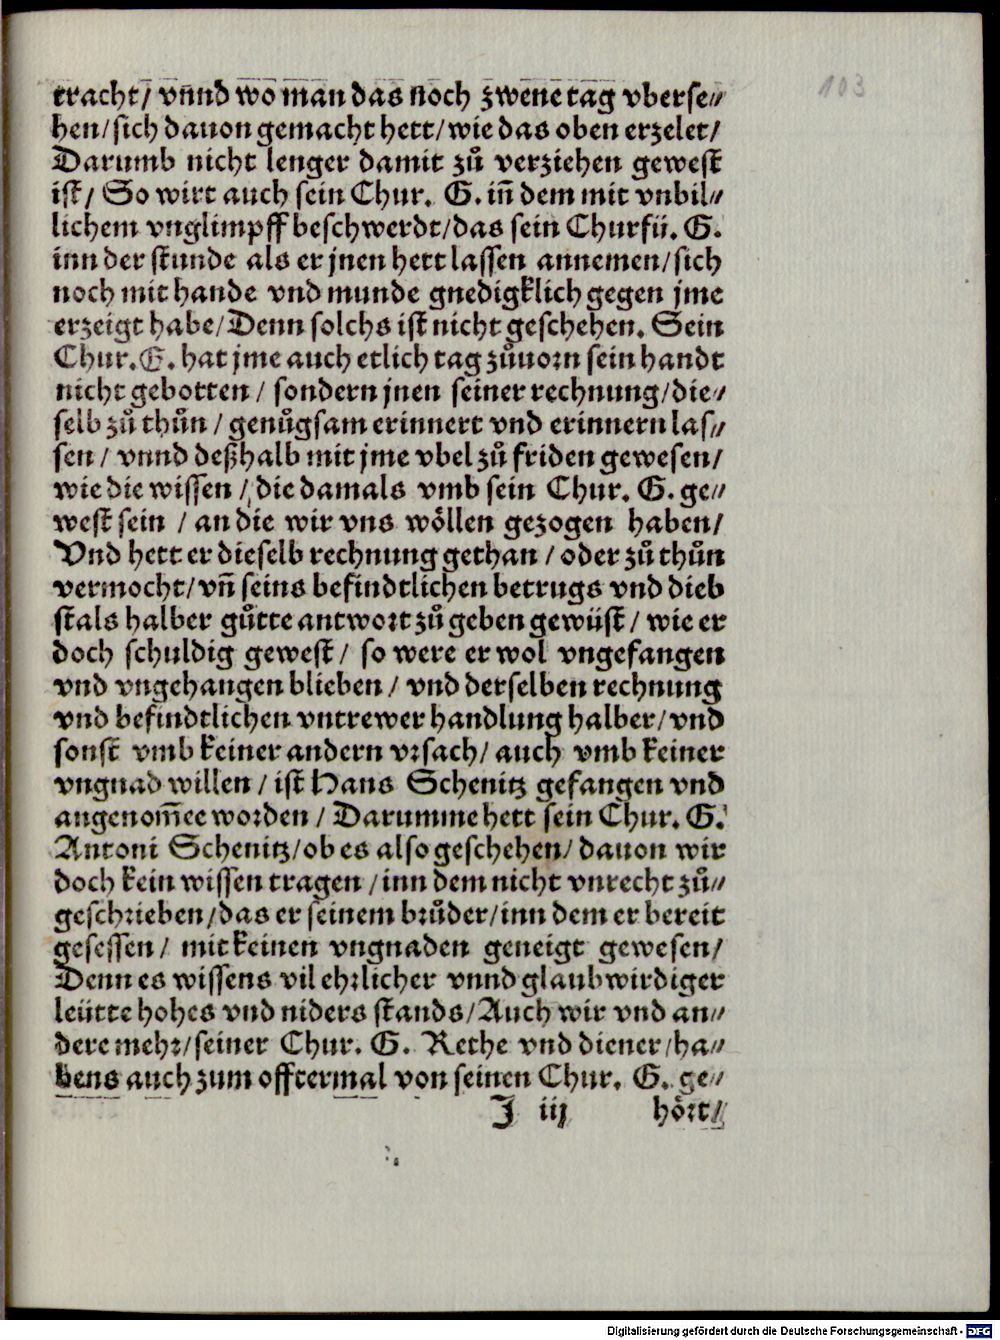 103
tracht/ vnnd wo man das noch zwene tag vberse⸗
hen/sich dauon gemacht hett/wie das oben erzelet/
Darumb nicht lenger damit zů verziehen gewest
ist/ So wirt auch sein Chur. G. in̄ dem mit vnbil⸗
lichem vnglimpff beschwerdt/das sein Churfü. G.
inn der stunde als er jnen hett lassen annemen/sich
noch mit hande vnd munde gnedigklich gegen jme
erzeigt habe/Denn solchs ist nicht geschehen. Sein
Chur.G. hat jme auch etlich tag zůuorn sein handt
nicht gebotten / sondern jnen seiner rechnung/die⸗
selb zů thůn / genůgsam erinnert vnd erinnern las⸗
sen / vnnd deßhalb mit jme vbel zů friden gewesen/
wie die wissen / die damals vmb sein Chur. G. ge⸗
west sein / an die wir vns wöllen gezogen haben/
Vnd hett er dieselb rechnung gethan / oder zů thůn
vermocht/vn̄ seins befindtlichen betrugs vnd dieb
stals halber gůtte antwort zů geben gewüst / wie er
doch schuldig gewest / so were er wol vngefangen
vnd vngehangen blieben / vnd derselben rechnung
vnd befindtlichen vntrewer handlung halber/vnd
sonst vmb keiner andern vrsach/ auch vmb keiner
vngnad willen / ist Hans Schenitz gefangen vnd
angenom̄ee worden / Darumme hett sein Chur. G.
Antoni Schenitz/ob es also geschehen/ dauon wir
doch kein wissen tragen /inn dem nicht vnrecht zů⸗
geschrieben/das er seinem brůder/inn dem er bereit
gesessen/ mit keinen vngnaden geneigt gewesen/
Denn es wissens vil ehrlicher vnnd glaubwirdiger
leütte hohes vnd niders stands/Auch wir vnd an⸗
dere mehr/seiner Chur. G. Rethe vnd diener/ha⸗
bens auch zum offtermal von seinen Chur. G. ge⸗
J iij hört/
Digitalisierung gefördert durch die Deutsche Forschungsgemeinschaft - DFG